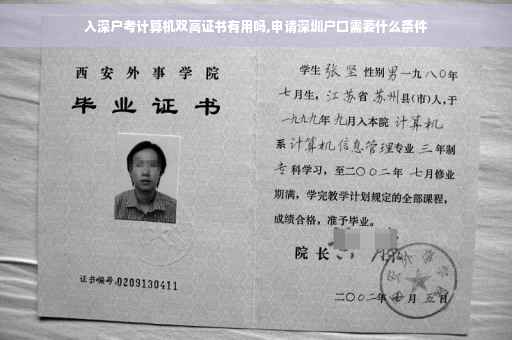 入深户考计算机双高证书有用吗,申请深圳户口需要什么条件
西安外事学院
毕业证书
证书编号:0209130411
学生 张坚 性别 男 一九八〇年
七月生, 江苏省 苏州 县(市)人,于
一九九九年 九月入本院 计算机
系 计算机信息管理 专业 三 年制
专 科学习, 至二〇〇二年 七月修业
期满, 学完教学计划规定的全部课程,
成绩合格, 准予毕业。
院长
二〇〇二年 月 五 日